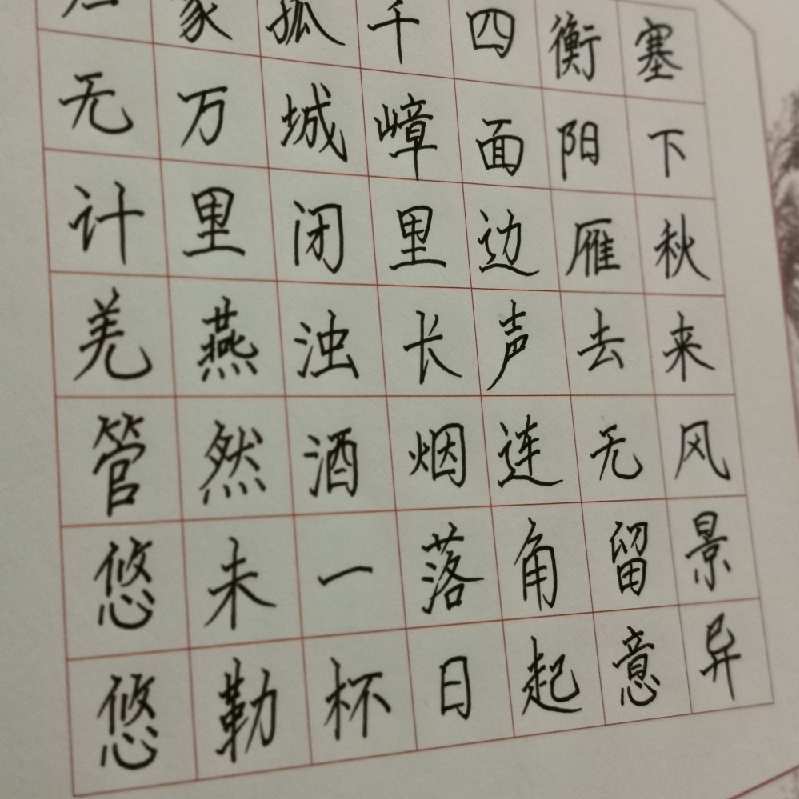 塞下秋来风景异
衡阳雁去无留意
四面边声连角起
千嶂里长烟落日
孤城闭浊酒一杯
家万里燕然未勒
无计羌管悠悠